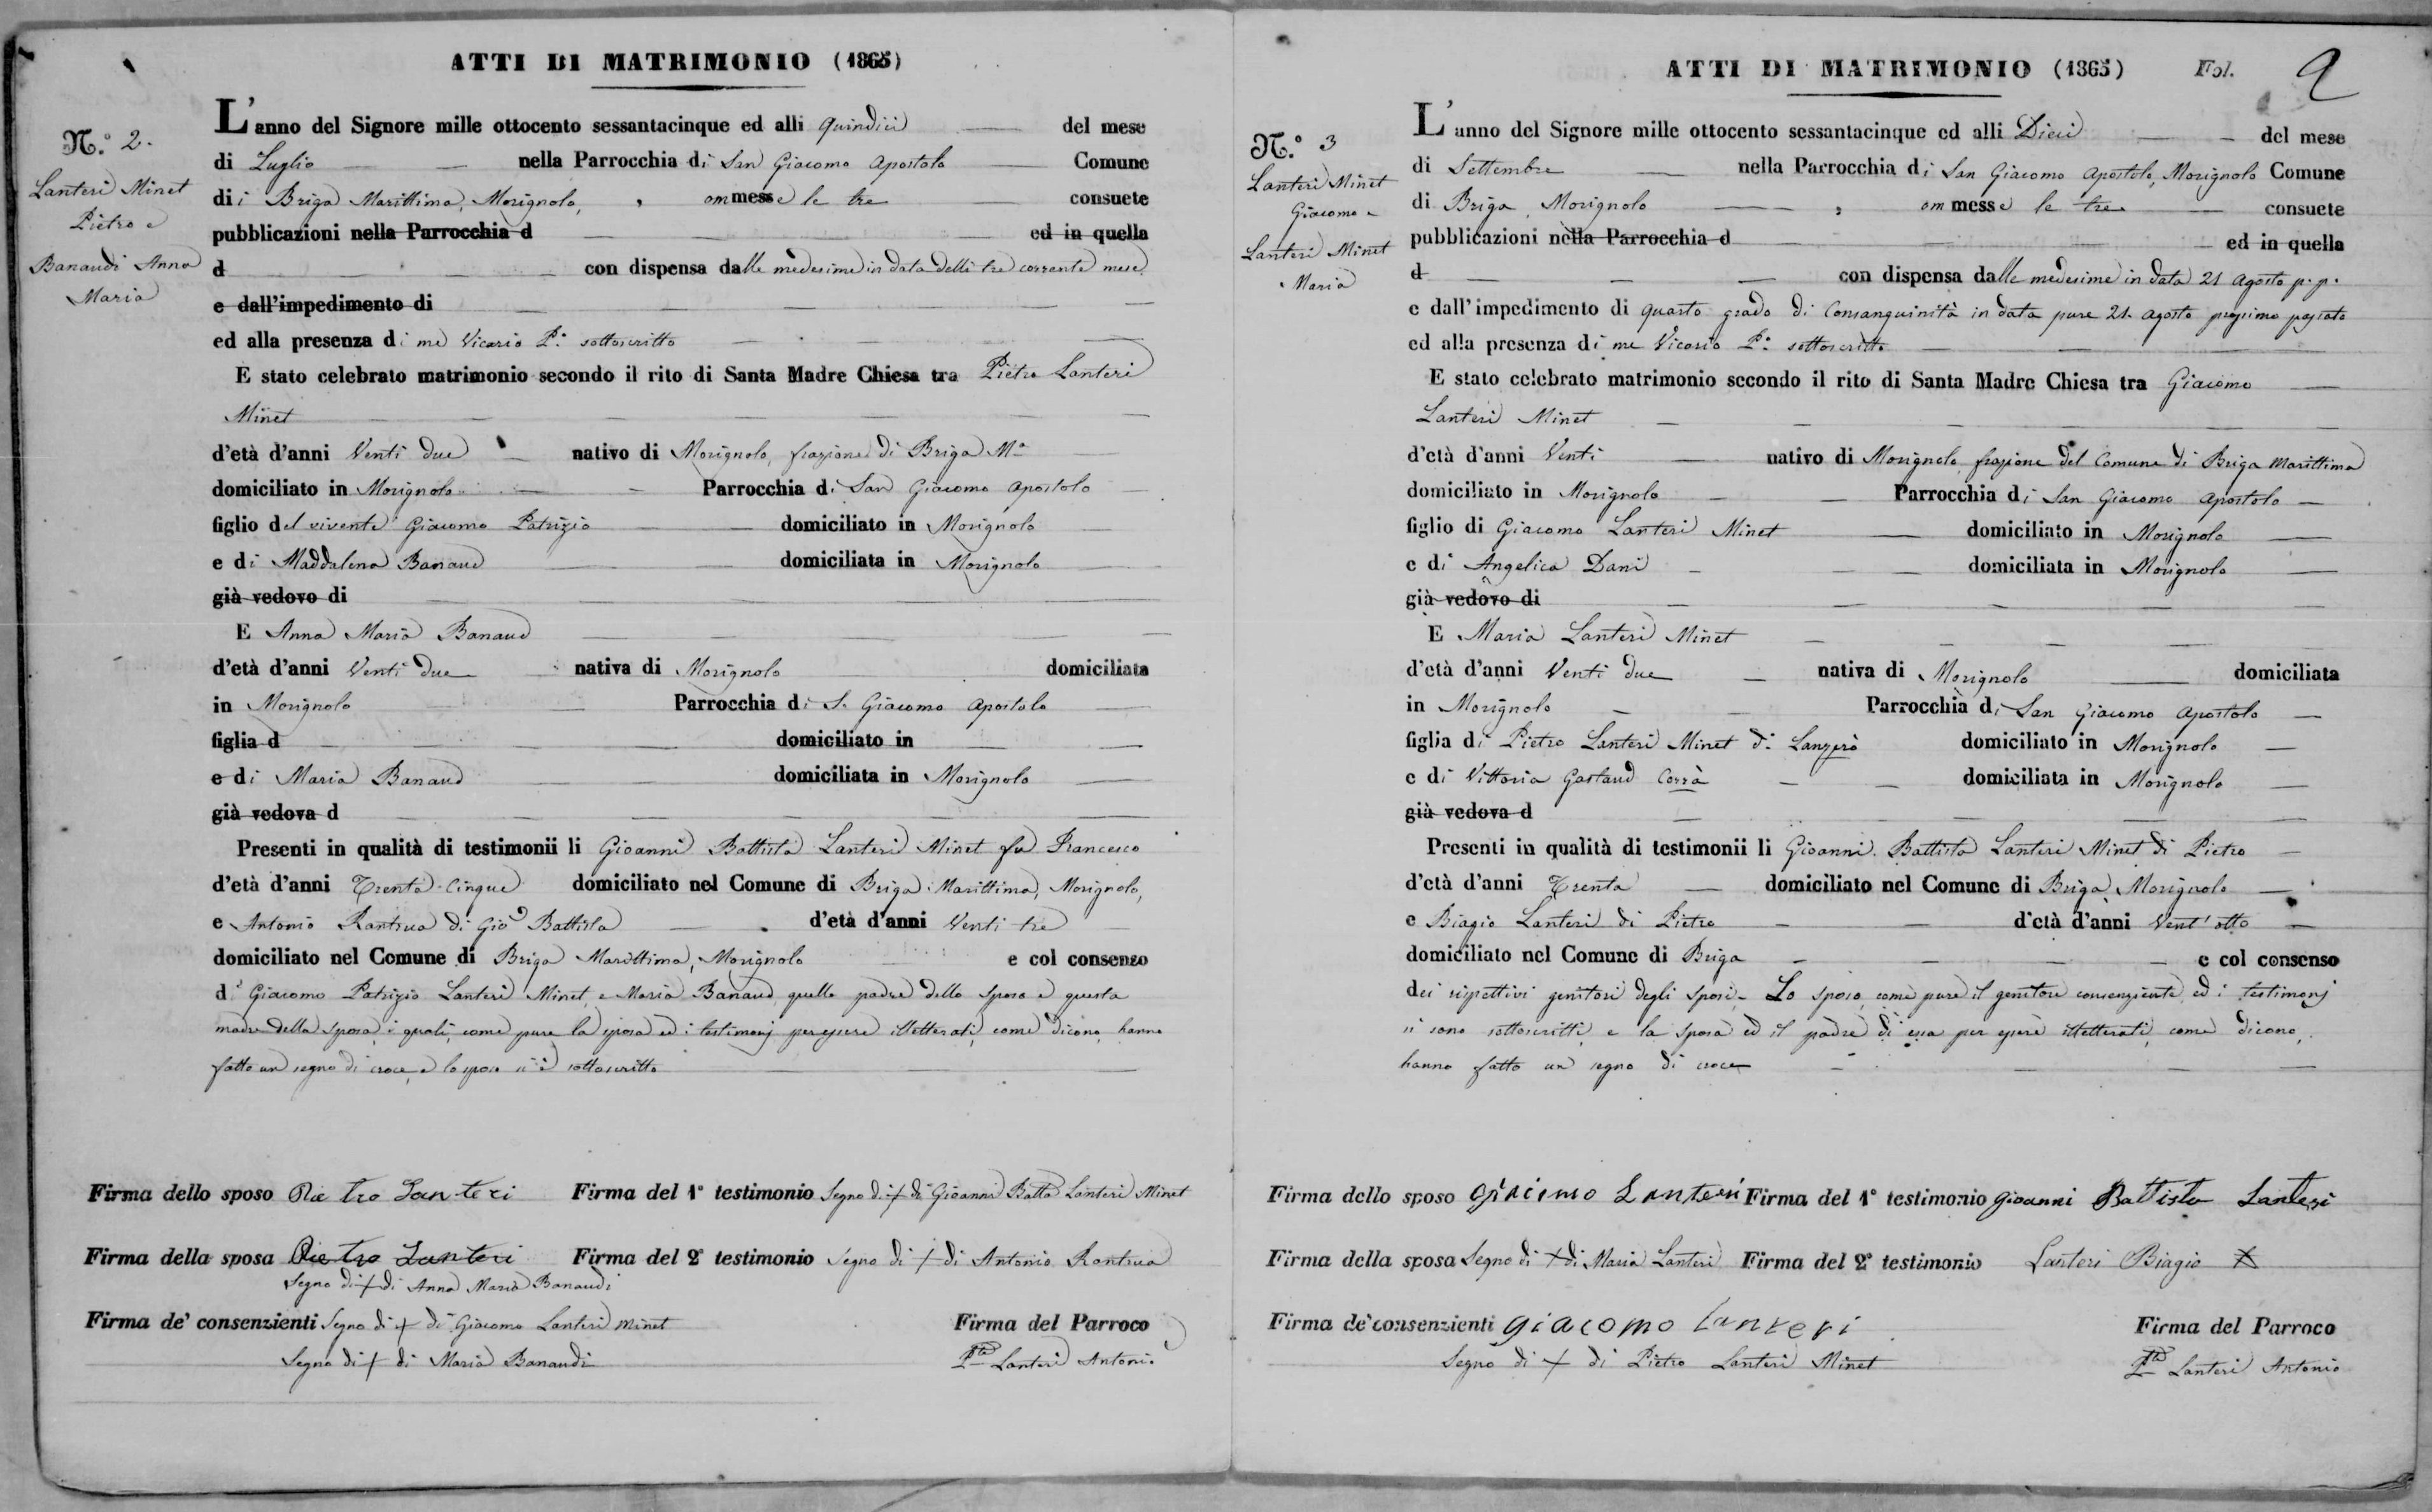 ATTI DI MATRIMONIO (1865)
N.° 2.
Lanteri Minet
Pietro e
Banaudi Anna
Maria
L'anno del Signore mille ottocento sessantacinque ed alli quindici del mese
di Luglio nella Parrocchia di San Giacomo Apostolo Comune
di Briga Marittima, Morignolo, ommesse le tre consuete
pubblicazioni nella Parrocchia d ed in quella
d con dispensa dalle medesime in data delli tre corrente mese
e dall'impedimento di
ed alla presenza di me Vicario P.° sottoscritto
E stato celebrato matrimonio secondo il rito di Santa Madre Chiesa tra Pietro Lanteri
Minet
d'età d'anni Venti due nativo di Morignolo, frazione di Briga M.a
domiciliato in Morignolo Parrocchia di San Giacomo Apostolo
figlio del vivente Giacomo Patrizio domiciliato in Morignolo
e di Maddalena Banaud domiciliata in Morignolo
già vedovo di
E Anna Maria Banaud
d'età d'anni Venti due nativa di Morignolo domiciliata
in Morignolo Parrocchia di S. Giacomo Apostolo
figlia d domiciliato in
e di Maria Banaud domiciliata in Morignolo
già vedova d
Presenti in qualità di testimonii li Gioanni Battista Lanteri Minet fu Francesco
d'età d'anni Trenta-cinque domiciliato nel Comune di Briga Marittima, Morignolo,
e Antonio Rantrua di Gio Battista d'età d'anni Venti tre
domiciliato nel Comune di Briga Marittima, Morignolo e col consenso
di Giacomo Patrizio Lanteri Minet, e Maria Banaud, quello padre dello sposo e questa
madre della sposa, i quali, come pure la sposa ed i testimonj per essere illetterati, come dicono, hanno
fatto un segno di croce, e lo sposo si è sottoscritto
Firma dello sposo Pietro Lanteri Firma del 1° testimonio Segno di + di Gioanni Batta Lanteri Minet
Firma della sposa Pietro Lanteri Firma del 2° testimonio Segno di + di Antonio Rantrua
Segno di + di Anna Maria Banaudi
Firma de' consenzienti Segno di + di Giacomo Lanteri Minet Firma del Parroco
Segno di + di Maria Banaudi Pte Lanteri Antonio
ATTI DI MATRIMONIO (1865) Fol. 2
N.° 3
Lanteri Minet
Giacomo e
Lanteri Minet
Maria
L'anno del Signore mille ottocento sessantacinque ed alli Dieci del mese
di Settembre nella Parrocchia di San Giacomo Apostolo, Morignolo Comune
di Briga, Morignolo, ommesse le tre consuete
pubblicazioni nella Parrocchia d ed in quella
d con dispensa dalle medesime in data 21 Agosto p. p.
e dall'impedimento di quarto grado di Consanguinità in data pure 21 Agosto prossimo passato
ed alla presenza di me Vicario P.° sottoscritto
E stato celebrato matrimonio secondo il rito di Santa Madre Chiesa tra Giacomo
Lanteri Minet
d'età d'anni Venti nativo di Morignolo frazione del Comune di Briga Marittima
domiciliato in Morignolo Parrocchia di San Giacomo Apostolo
figlio di Giacomo Lanteri Minet domiciliato in Morignolo
e di Angelica Dani domiciliata in Morignolo
già vedovo di
E Maria Lanteri Minet
d'età d'anni Venti due nativa di Morignolo domiciliata
in Morignolo Parrocchia di San Giacomo Apostolo
figlia di Pietro Lanteri Minet di domiciliato in Morignolo
e di Vittoria Gastaud domiciliata in Morignolo
già vedova d
Presenti in qualità di testimonii li Gioanni Battista Lanteri Minet di Pietro
d'età d'anni Trenta domiciliato nel Comune di Briga, Morignolo
e Biagio Lanteri di Pietro d'età d'anni Vent'otto
domiciliato nel Comune di Briga e col consenso
dei rispettivi genitori degli sposi. Lo sposo, come pure il genitore consenziente, ed i testimonj
si sono sottoscritti, e la sposa ed il padre di essa per essere illetterati, come dicono,
hanno fatto un segno di croce
Firma dello sposo Giacomo Lanteri Firma del 1° testimonio Gioanni Battista Lanteri
Firma della sposa Segno di + di Maria Lanteri Firma del 2° testimonio Lanteri Biagio
Firma de' consenzienti Giacomo Lanteri Firma del Parroco
Segno di + di Pietro Lanteri Minet Pte Lanteri Antonio